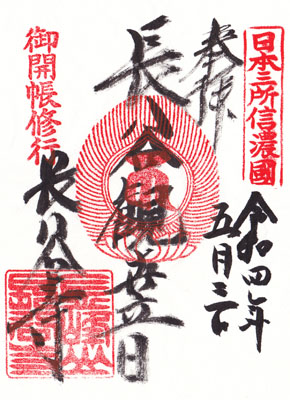 日本三所信濃國
奉拝
令和四年
五月三日
長谷観世音
御開帳修行
長谷寺